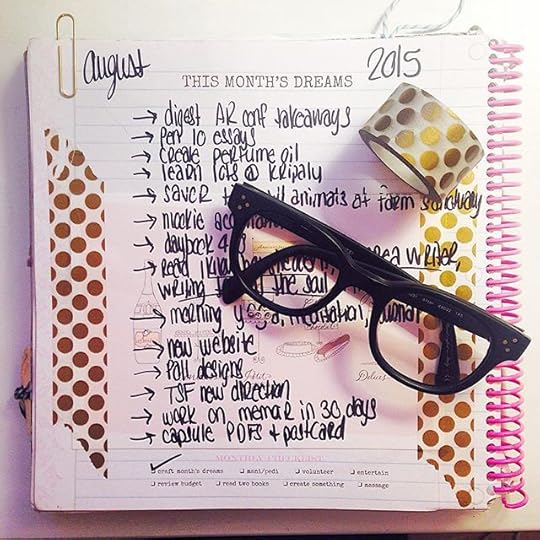 august 2015
THIS MONTH'S DREAMS
→ digest AR conf takeaways
→ pen 10 essays
→ create perfume oil
→ learn lots @ kripalu
→ savor animals at farm sanctuary
→ mookie
→ daybook
→ read writer,
writing the soul
→ morning yoga, meditation, journal
→ new website
→ fall designs
→ TSF new direction
→ work on memoir in 30 days
→ capsule PDFs + postcard
MONTHLY CHECKLIST
craft month's dreams mani/pedi volunteer entertain
review budget read two books create something massage